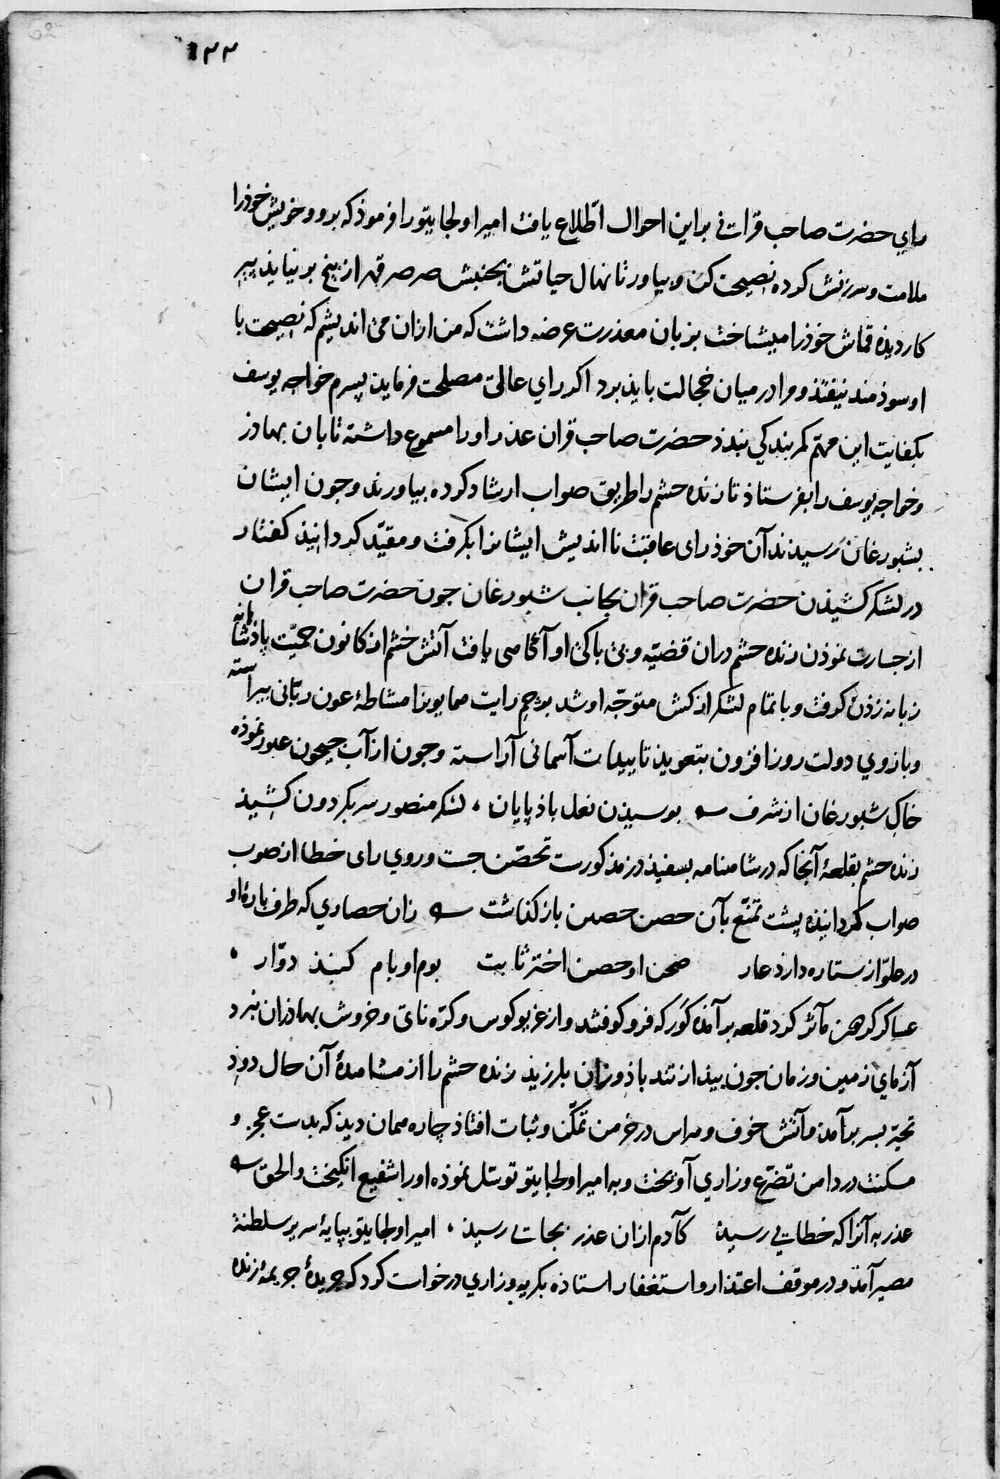 ۱۳۳
رای حضرت صاحب قرانی براین احوال اطلاع یافت امیر اولجایتو را فرموذ که برو و خویش خوذرا
ملامت و سرزنش کرده نصیحت کن و بیاور تا نهال حیاتش بجنبش صرصر قهر از بیخ برنیاید پیر
کاردیذه قماش خوذرا میشناخت بزبان معذرت عرضه داشت که من ازان می اندیشم که نصیحت با
او سوذمند نیفتذ و مرا درمیان خجالت بایذ برد اکر رای عالی مصلحت فرماید پسرم خواجه یوسف
بکفایت این مهم کمر بندکی بندذ حضرت صاحب قران عذر اورا مسموع داشته تابان بهادر
وخواجه یوسف را بفرستاذ تا زنده حشم را طریق صواب ارشاد کرده بیاورند وجون ایشان
بشبورغان رسیذند آن خوذرای عاقبت نااندیش ایشانرا بکرفت ومقید کردانیذ کفتار
در لشکر کشیذن حضرت صاحب قران بجانب شبورغان جون حضرت صاحب قران
از جسارت نموذن زنده حشم دران قضیه وبی باکی او آکاهی یافت آتش خشم از کانون حمیت پاذشاهانه
زبانه زذن کرفت و با تمام لشکر از کش متوجه او شد پرجم رایت همایونرا مشاطهٔ عون ربانی پیراسته
وبازوی دولت روزافزون بتعویذ تاییدات آسمانی آراسته وجون از آب جیحون عبور نموذه
خاک شبورغان از شرف بوسیذن نعل باذپایان ، لشکر منصور سر بکردون کشیذ
زنده حشم بقلعهٔ آنجا که در شاهنامه بسفیذ دز مذکورست تحصن جست وروی رای خطا از صوب
صواب کردانیذه پشت تمنع بآن حصن حصین بازکذاشت زان حصاری که طرف بارهٔ او
در علو از ستاره دارذ عار صحن او حصن اختر ثابت بوم او بام کنبذ دوار ،
عساکر کردون مآثر کرد قلعه برآمذه کورکه فرو کوفتند واز غریو کوس و کره نای و خروش بهاذران نبرد
آزمای زمین و زمان جون بیذ از تند باذ وزان بلرزیذ زنده حشم را از مشاهدهٔ آن حال دوذ
تحیر بسر برآمذ و آتش خوف و هراس در خرمن تمکن وثبات افتاذ چاره همان دیذ که بدست عجز و
مسکنت در دامن تضرع وزاری آویخت و به امیر اولجایتو توسل نموذه اورا شفیع انکیخت والحق
عذر به آنرا که خطایی رسیذ کآدم ازان عذر بجایی رسیذ ، امیر اولجایتو بپایهٔ سریر سلطنة
مصیر آمذ و در موقف اعتذار و استغفار استاذه بکریه وزاری درخواست کرد که جریدهٔ جریمهٔ زنده